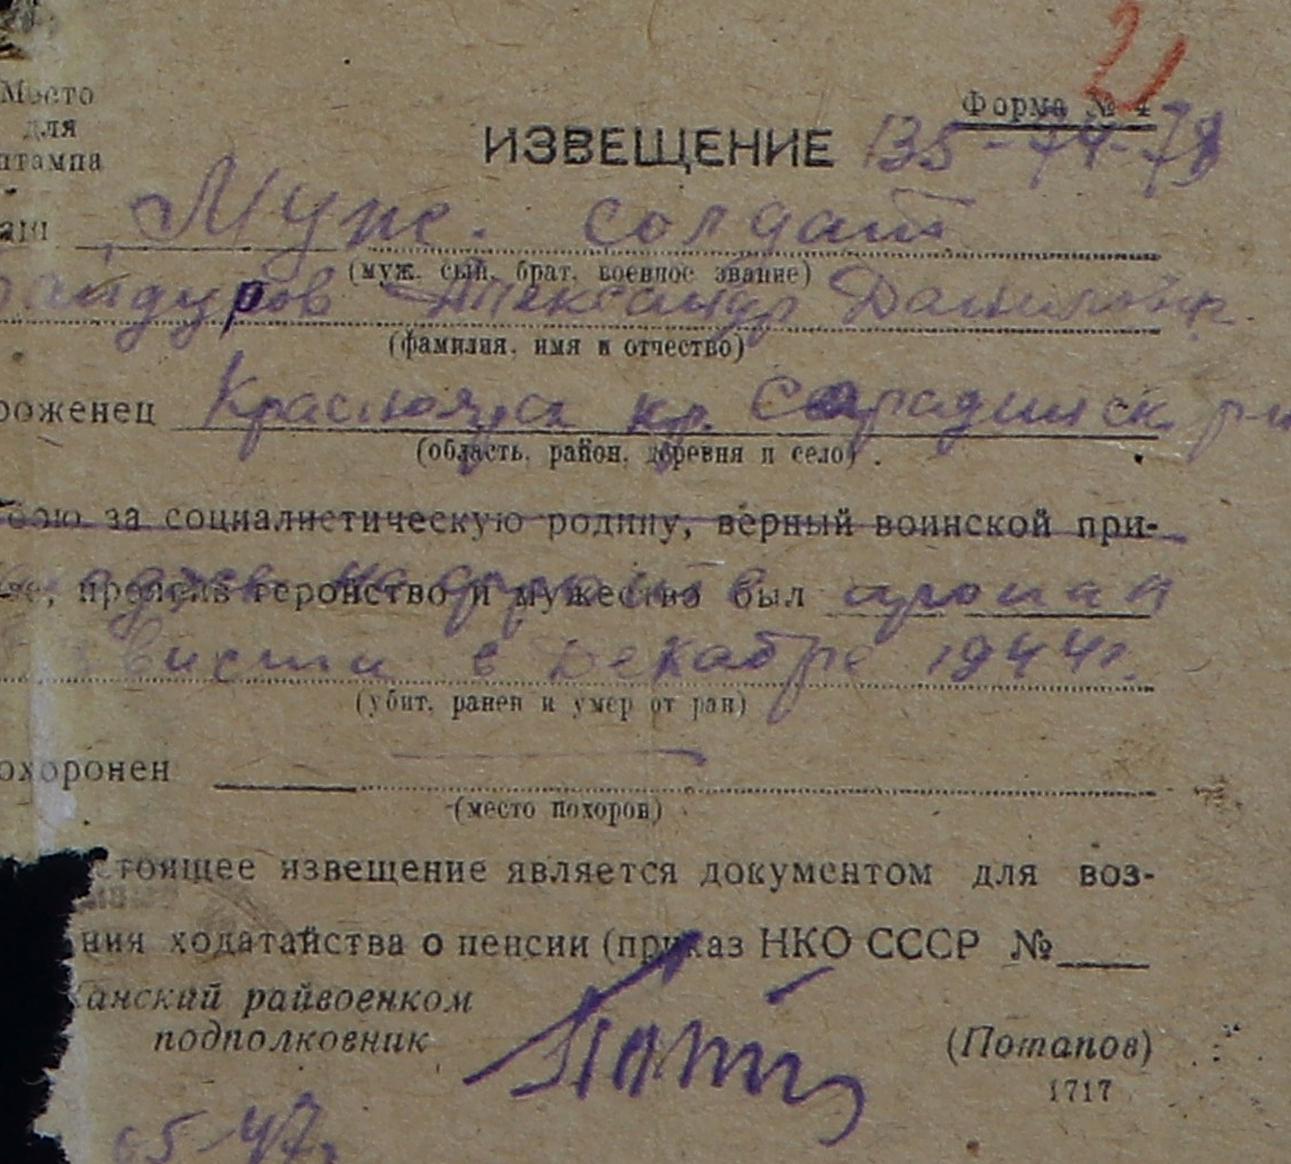 21
Место
для
штампа
Форма № 4
ИЗВЕЩЕНИЕ 135-74-78
аш Муж. солдат
(муж. сын, брат, военное звание)
айдуров Александр Данилович
(фамилия, имя и отчество)
роженец Красноярск кр. Саградинск р-н
(область, район, деревня и село)
бою за социалистическую родину, верный воинской при-
проявив геройство и мужество был пропал
вести в декабре 1944 г.
(убит, ранен и умер от ран)
охоронен
(место похорон)
стоящее извещение является документом для воз-
ния ходатайства о пенсии (приказ НКО СССР №
Канский райвоенком
подполковник
(Потапов)
1717
5-47